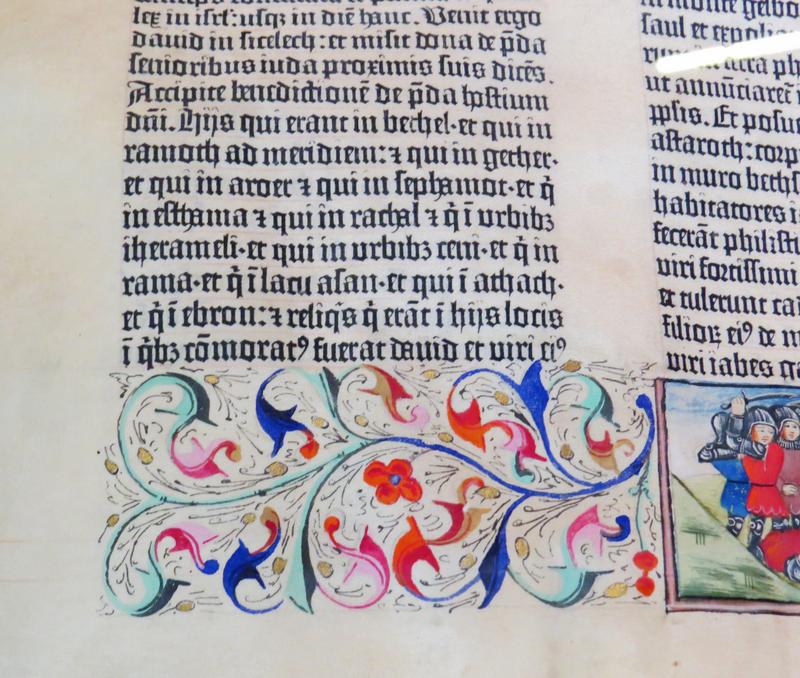 lex in isrl': usqz in diē hanc. Venit ergo
david in sicelech: et misit dona de p̄da
senioribus iuda proximis suis dicēs.
Accipite benedictionē de p̄da hostium
dn̄i. Hijs qui erant in bethel· et qui in
ramoth ad meridiem: ⁊ qui in gether·
et qui in aroer ⁊ qui in sephamot· et q̇
in esthama ⁊ qui in rachal ⁊ q̇ ī urbibꝫ
iherameli· et qui in urbibꝫ ceni· et q̇ in
rama· et q̇ ī lacu asan· et qui ī athach·
et q̇ ī ebron: ⁊ reliq̇s q̇ erāt ī hijs locis
ī q̇bꝫ cōmoratꝰ fuerat david et viri eiꝰ
saul et
ut annūciaret
ppl'is. Et posu
astaroth: corp
in muro beths
habitatores i
fecerāt philisti
viri fortissimi
et tulerunt ca
filioꝝ eiꝰ de m
viri iabes ga